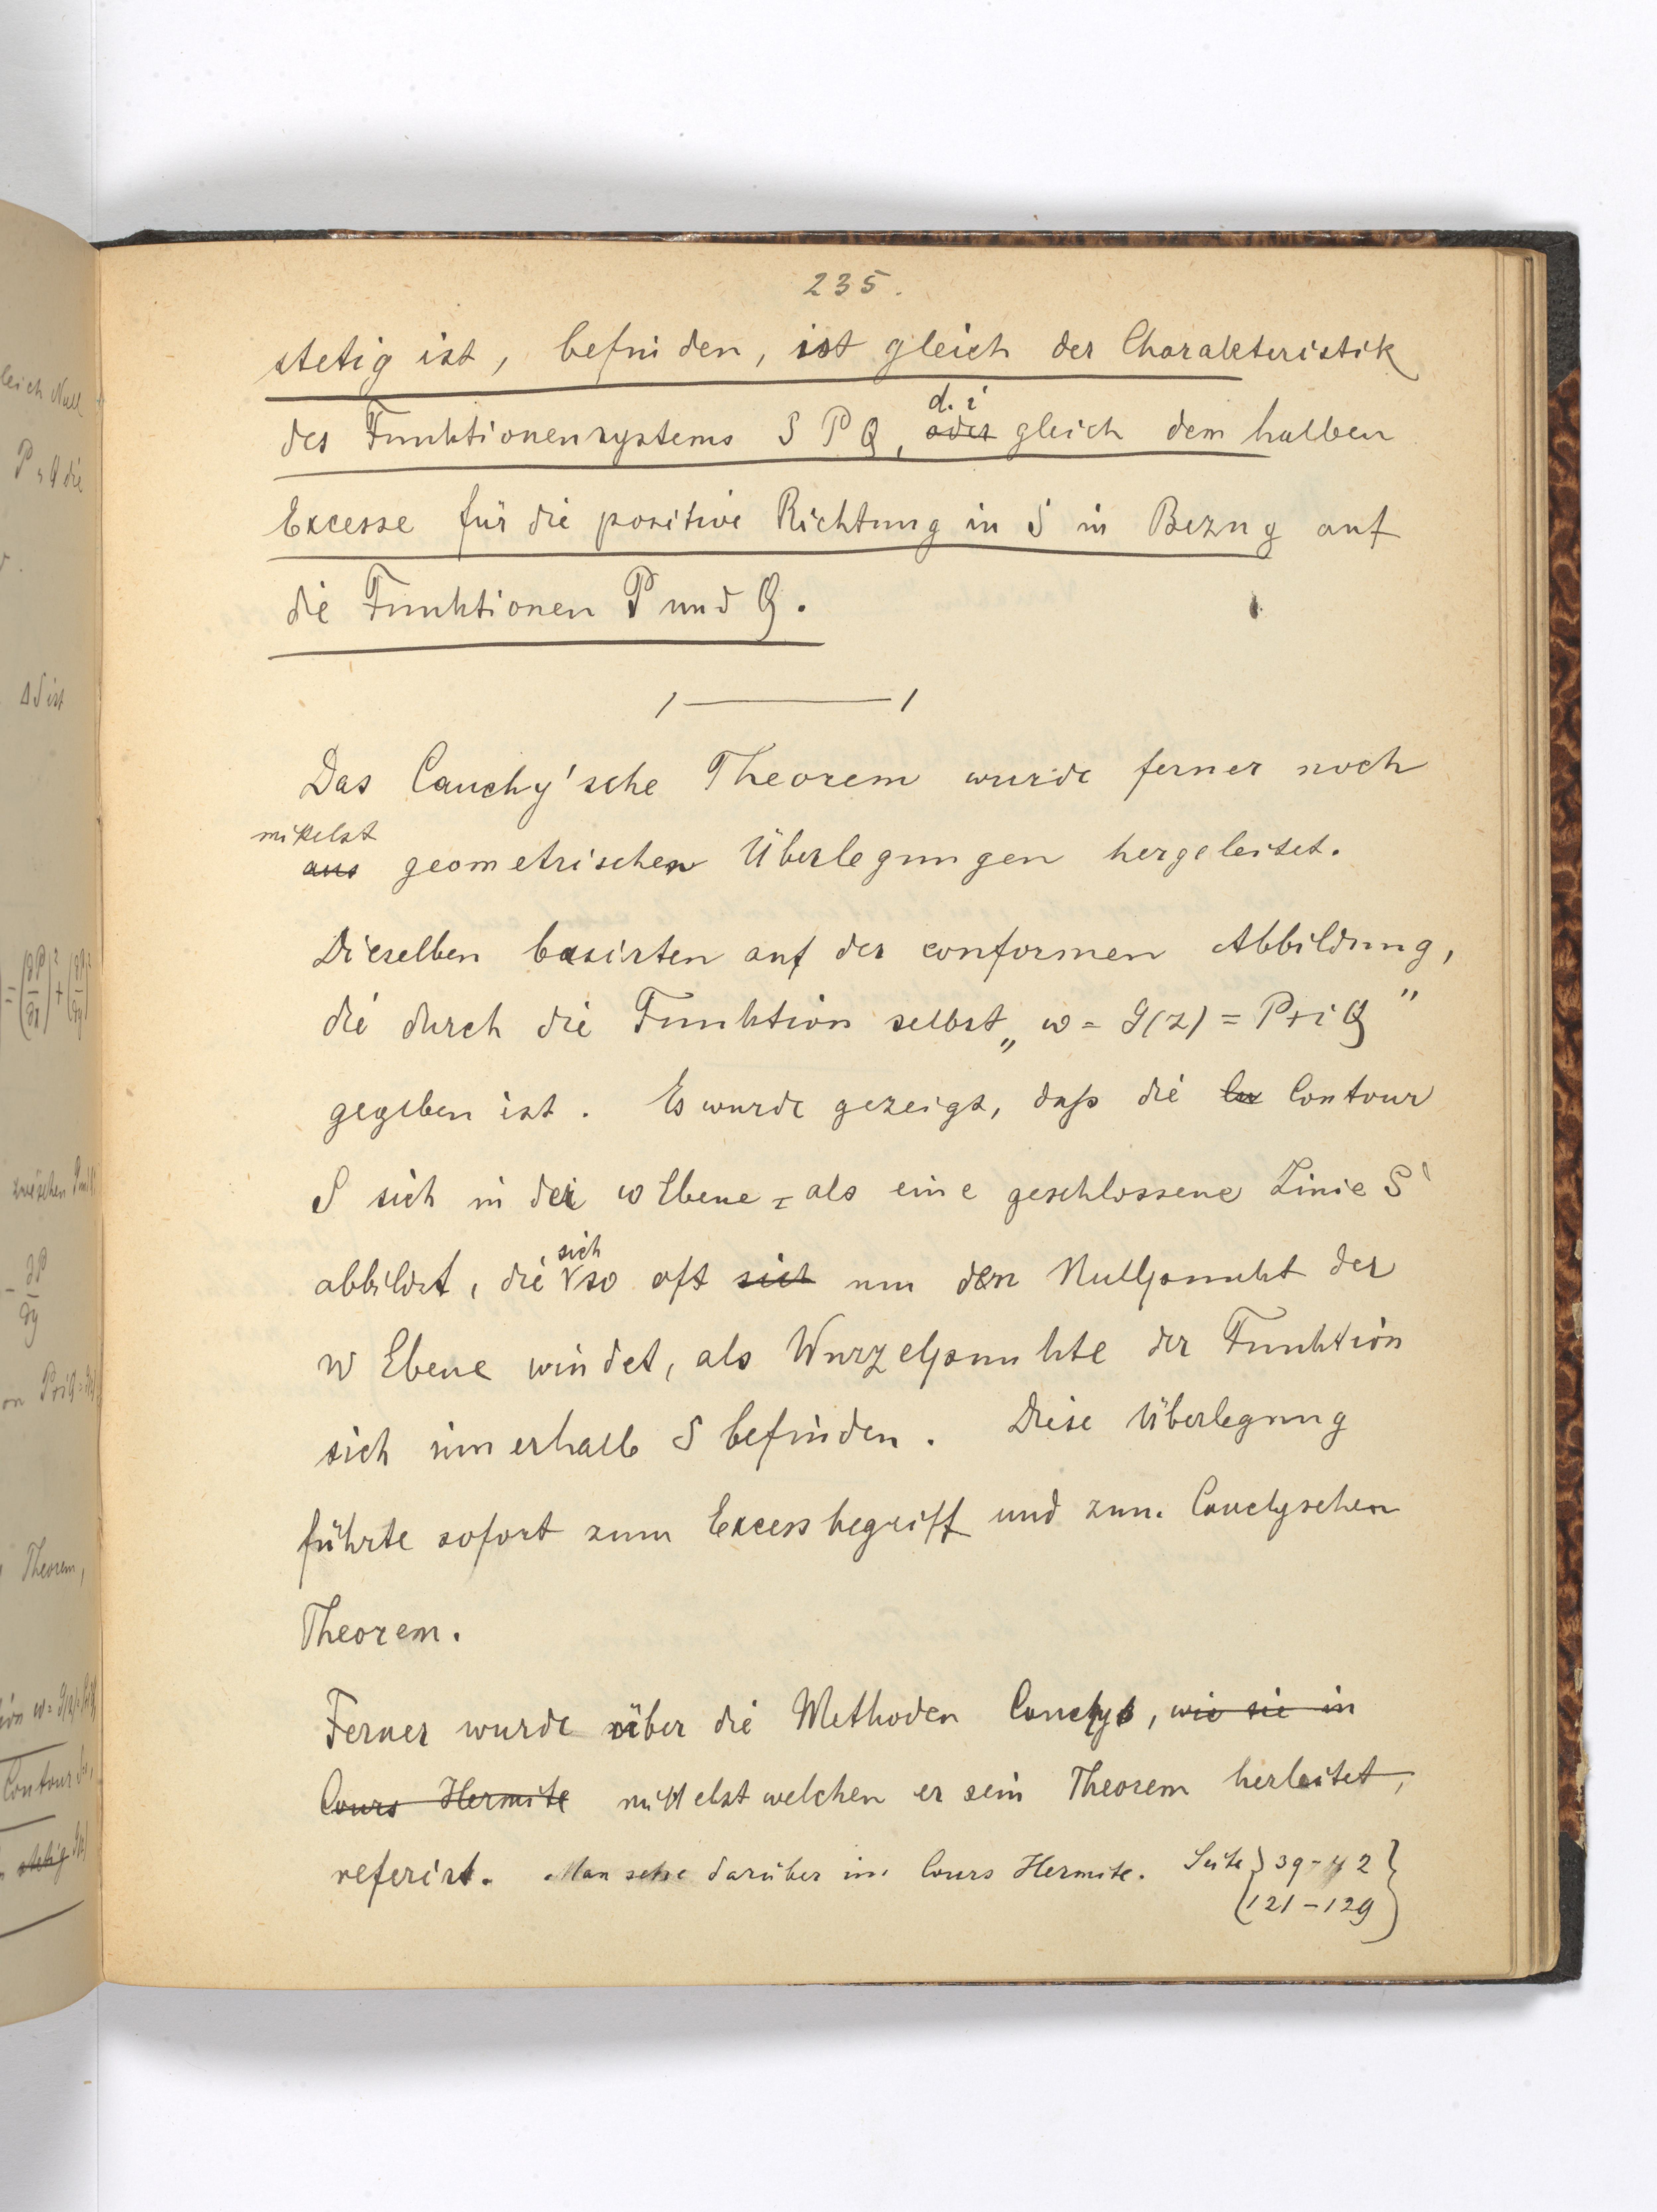 235.
stetig ist, befinden, ist gleich der Charakteristik
des Funktionensystems S P Q, d. i
oder gleich dem halben
Excesse für die positive Richtung in S in Bezug auf
die Funktionen P und Q.
Das Cauchy'sche Theorem wurde ferner noch
mittelst
aus geometrischen Überlegungen hergeleitet.
Dieselben basirten auf der conformen Abbildung,
die durch die Funktion selbst „ w = g(z) = P+iQ ”
gegeben ist. Es wurde gezeigt, daß die Contour
S sich in der w Ebene als eine geschlossene Linie S'
abbildet, die sich so oft sich um den Nullpunkt der
w Ebene windet, als Wurzelpunkte der Funktion
sich innerhalb S befinden. Diese Überlegung
führte sofort zum Excessbegriff und zum Cauchyschen
Theorem.
Ferner wurde über die Methoden Cauchys, wie sie in
Cours Hermite mittelst welchen er sein Theorem herleitet,
referirt. Man sehe darüber im Cours Hermite. Seite } 39-42 }
(121-129)
leich Null
P, Q die
ΔS ist
zwischen
- ∂P/∂y
on P+iQ
Theorem,
Contour
stetig